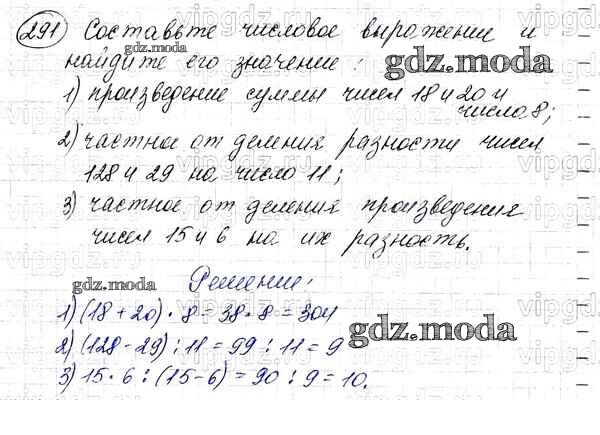 291 Составьте числовое выражение и
найдите его значение:
1) произведение суммы чисел 18 и 20 и
числа 8;
2) частное от деления разности чисел
128 и 29 на число 11;
3) частное от деления произведения
чисел 15 и 6 на их разность.
Решение:
1) (18 + 20) · 8 = 38 · 8 = 304
2) (128 - 29) : 11 = 99 : 11 = 9
3) 15 · 6 : (15 - 6) = 90 : 9 = 10.
gdz.moda
gdz.moda
gdz.moda
gdz.moda